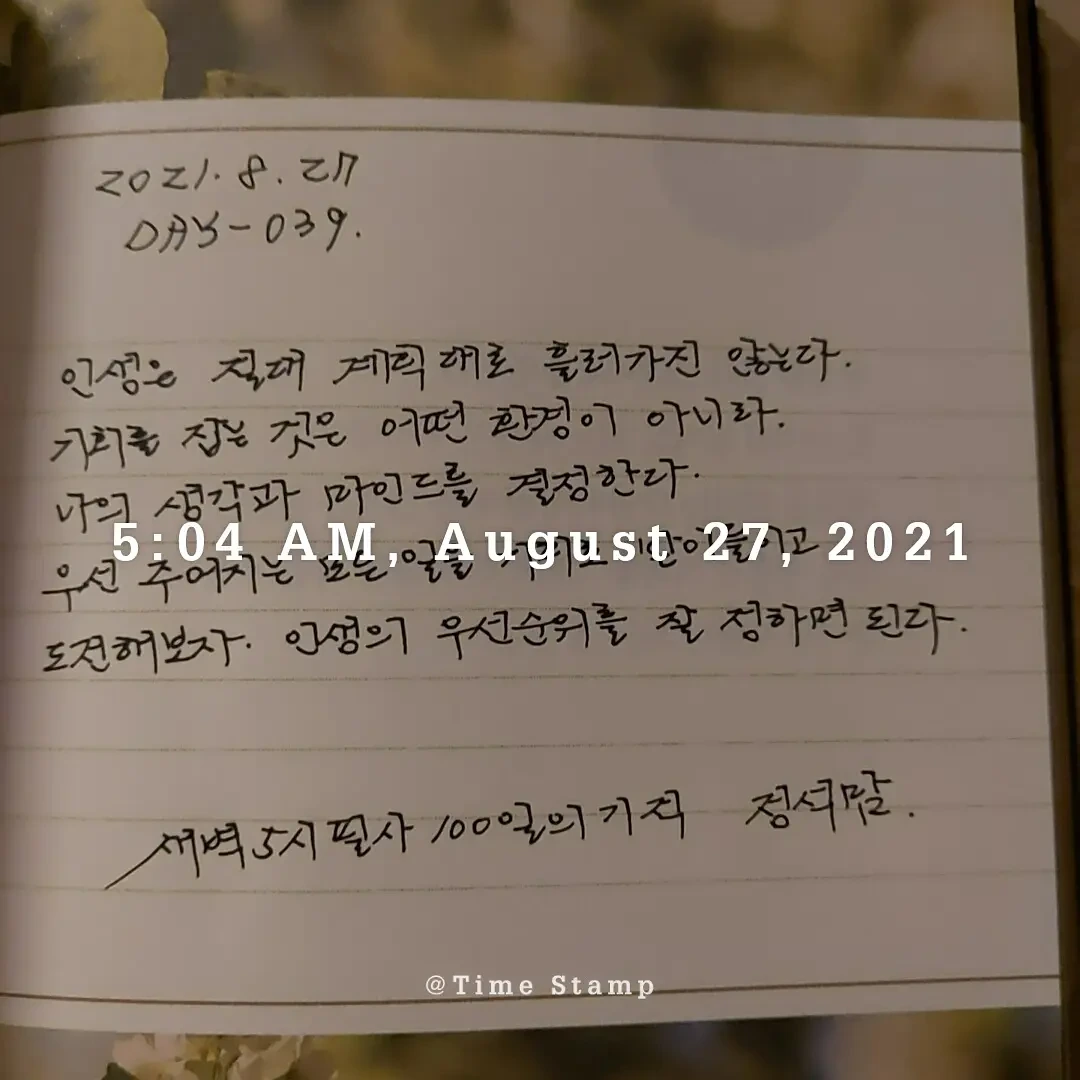 2021. 8. 27
DAY-039.
인생은 절대 계획대로 흘러가진 않는다.
기회를 잡는 것은 어떤 환경이 아니라.
나의 생각과 마인드를 결정한다.
5:04 AM, August 27, 2021
우선 주어지는 모든 일을 받아들이고
도전해보자. 인생의 우선순위를 잘 정하면 된다.
새벽5시필사 100일의기적 정석맘.
@Time Stamp